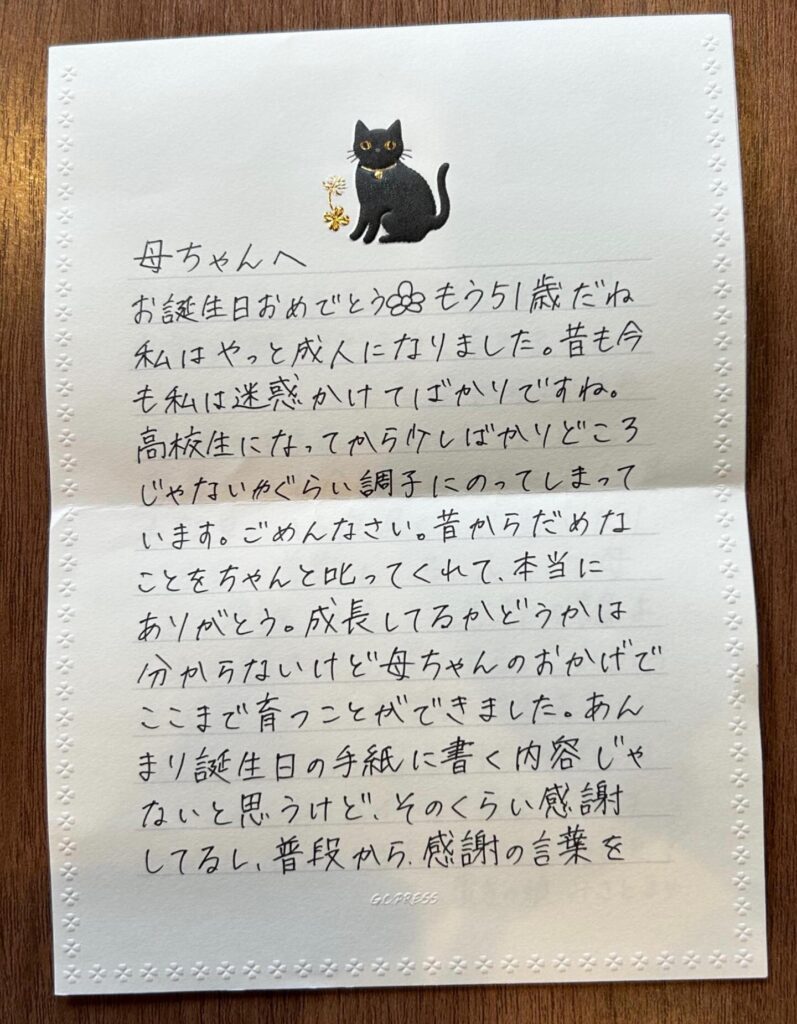 母ちゃんへ
お誕生日おめでとう もう51歳だね
私はやっと成人になりました。昔も今
も私は迷惑かけてばかりですね。
高校生になってから少しばかりどころ
じゃないゃぐらい調子にのってしまって
います。ごめんなさい。昔からだめな
ことをちゃんと叱ってくれて、本当に
ありがとう。成長してるかどうかは
分からないけど母ちゃんのおかげで
ここまで育つことができました。あん
まり誕生日の手紙に書く内容じゃ
ないと思うけど、そのくらい感謝
してるし、普段から、感謝の言葉を
G.C.PRESS